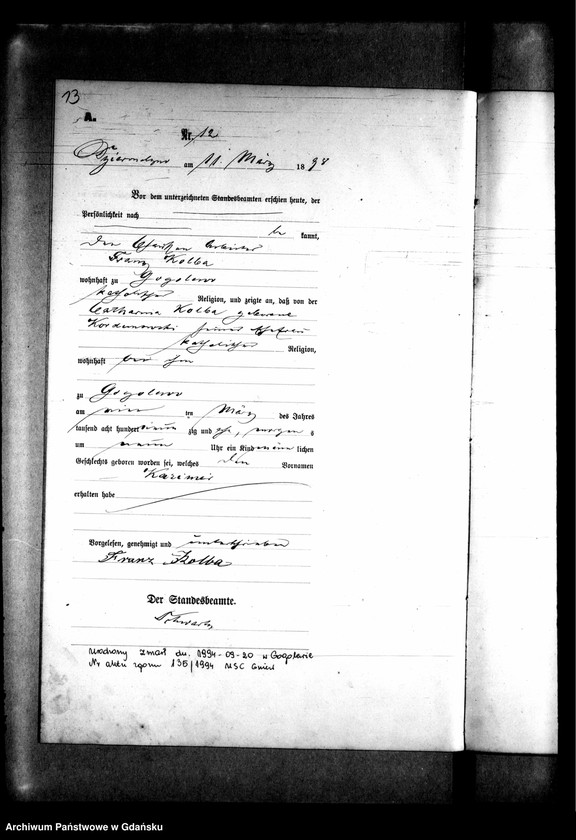 13
A.
Nr. 12
am 11. März 1898
Vor dem unterzeichneten Standesbeamten erschien heute, der
Persönlichkeit nach
be kannt,
Franz Kolba
wohnhaft zu Gogolewo
katholischer Religion, und zeigte an, daß von der
Catharina Kolba geborene
seiner Ehefrau
katholischer Religion,
wohnhaft bei ihm
zu Gogolewo
am ten März des Jahres
tausend acht hundert neun zig und acht, morgens
um neun Uhr ein Kind männ lichen
Geschlechts geboren worden sei, welches den Vornamen
Kasimir
erhalten habe
Vorgelesen, genehmigt und unterschrieben
Franz Kolba
Der Standesbeamte.
Urodzony zmarł dn. 1994-09-20 w Gogolewie
Nr aktu zgonu 135/1994 USC Gniew
Archiwum Państwowe w Gdańsku